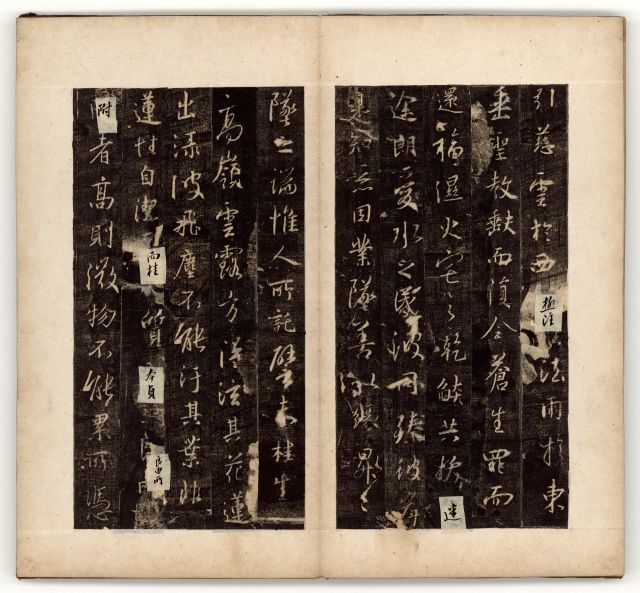 引慈雲於西極注法雨於東
垂聖教缺而復全蒼生罪而
還福濕火宅之乾焰共拔迷
途朗愛水之昏波同臻彼岸
是知惡因業墜善以緣昇々
墜之端惟人所託譬夫桂生
高嶺雲露方得泫其花蓮
出淥波飛塵不能汙其葉非
蓮性自潔而桂質本貞良由所
附者高則微物不能累所憑